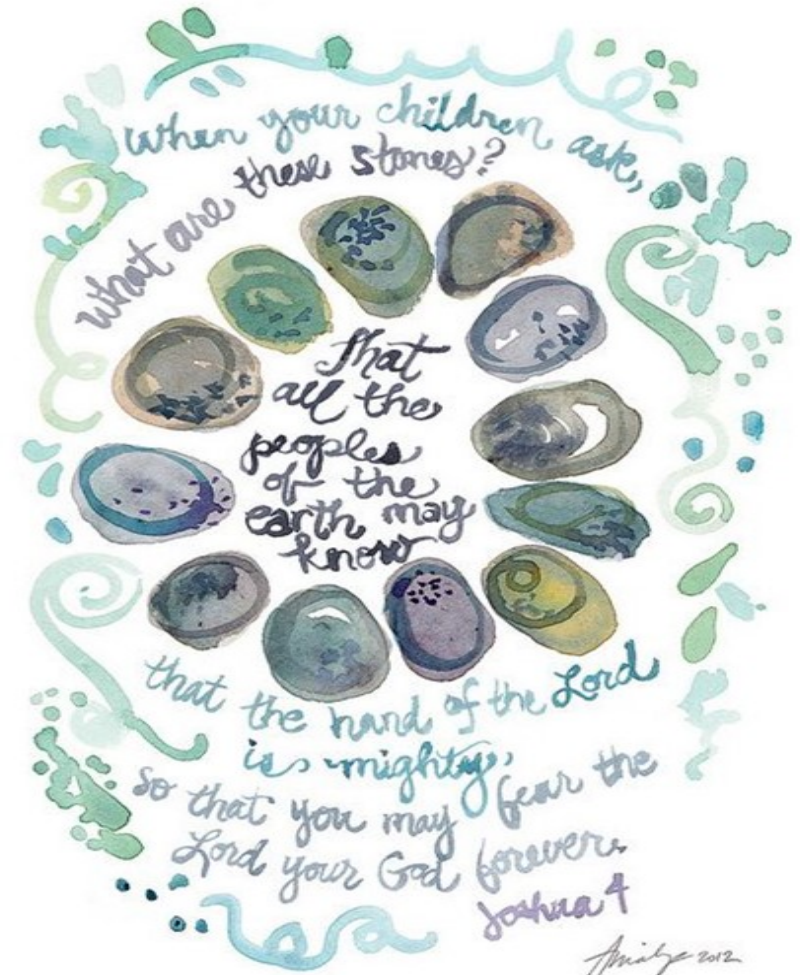 When your children ask,
what are these stones?
That
all the
peoples
of the
earth may
know
that the hand of the Lord
is mighty,
so that you may fear the
Lord your God forever.
Joshua 4
2012